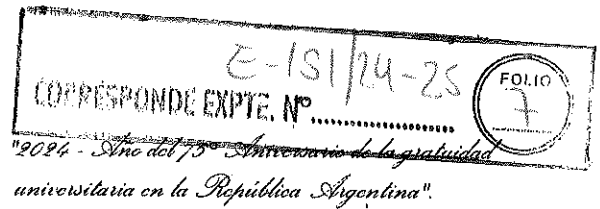 E-151/24-25
FOLIO
7
CORRESPONDE EXPTE. Nº
"2024 - Año del 75º Aniversario de la gratuidad
universitaria en la República Argentina".